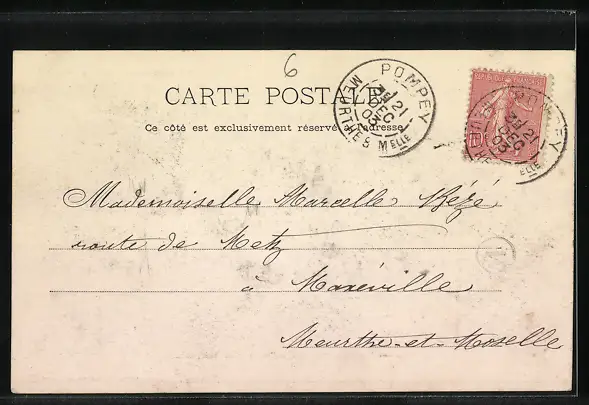 6
CARTE POSTALE
Ce côté est exclusivement réservé à l'adresse
POMPEY
21
DEC
03
MEURTHE & MELLE
Mademoiselle Marcelle Bézé
route de Metz
à Maxéville
Meurthe-et-Moselle